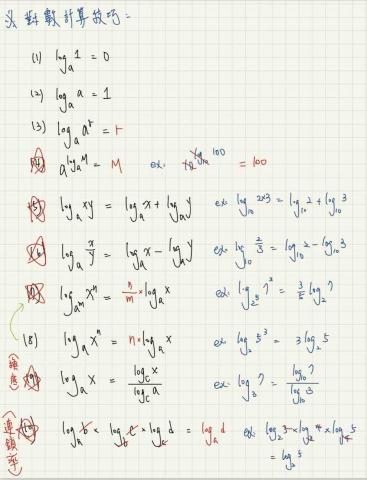 ※ 對數計算技巧:
(1) log_a 1 = 0
(2) log_a a = 1
(3) log_a a^r = r
(4) a^{log_a M} = M ex: 10^{log_10 100} = 100
(5) log_a xy = log_a x + log_a y ex: log_10 2×3 = log_10 2 + log_10 3
(6) log_a x/y = log_a x - log_a y ex: log_10 2/3 = log_10 2 - log_10 3
(7) log_{a^m} x^n = n/m × log_a x ex: log_{2^5} 7^3 = 3/5 log_2 7
(8) log_a x^n = n × log_a x ex: log_2 5^3 = 3 log_2 5
(換底) (9) log_a x = log_c x / log_c a ex: log_3 7 = log_10 7 / log_10 3
(連鎖率) (10) log_a b × log_b c × log_c d = log_a d ex: log_2 3 × log_3 4 × log_4 5
= log_2 5